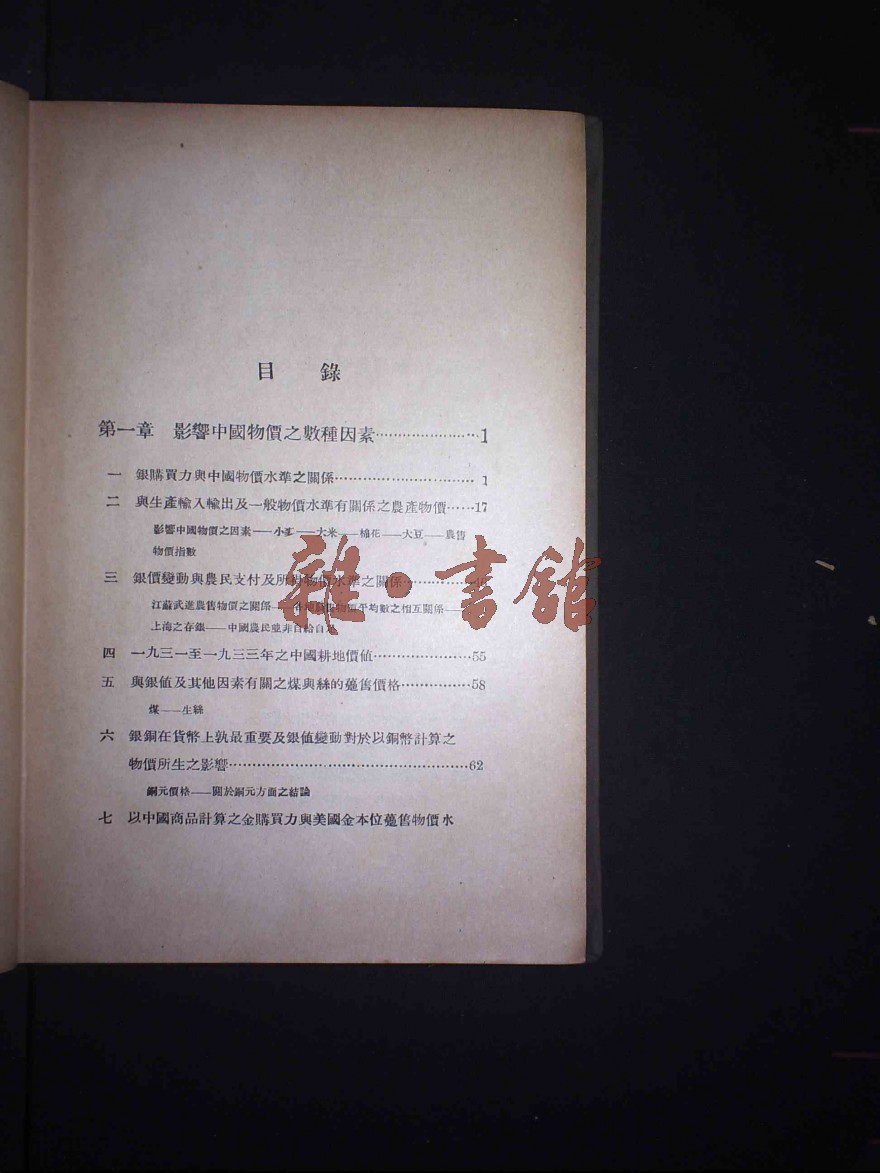 目錄
第一章 影響中國物價之數種因素……………………1
一 銀購買力與中國物價水準之關係……………………1
二 與生產輸入輸出及一般物價水準有關係之農產物價……17
影響中國物價之因素——小麥——大米——棉花——大豆——農售
物價指數
三 銀價變動與農民支付及所得物價水準之關係
江蘇武進農售物價之關係——物價平均數之相互關係——
上海之存銀——中國農民並非自給自足
四 一九三一至一九三三年之中國耕地價值……………………55
五 與銀值及其他因素有關之煤與絲的躉售價格……………58
煤——生絲
六 銀銅在貨幣上孰最重要及銀值變動對於以銅幣計算之
物價所生之影響……………………………………………62
銅元價格——關於銅元方面之結論
七 以中國商品計算之金購買力與美國金本位躉售物價水
雜·書館